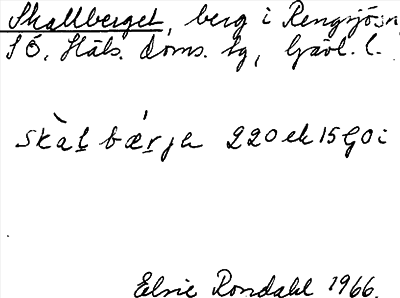 Skallberget, berg i Rengsjö sn,
SÖ. Häls. doms. hg, Gävl. l.
skàl bǽrjə 220 ek 15 G0i
Elsie Rondahl 1966.